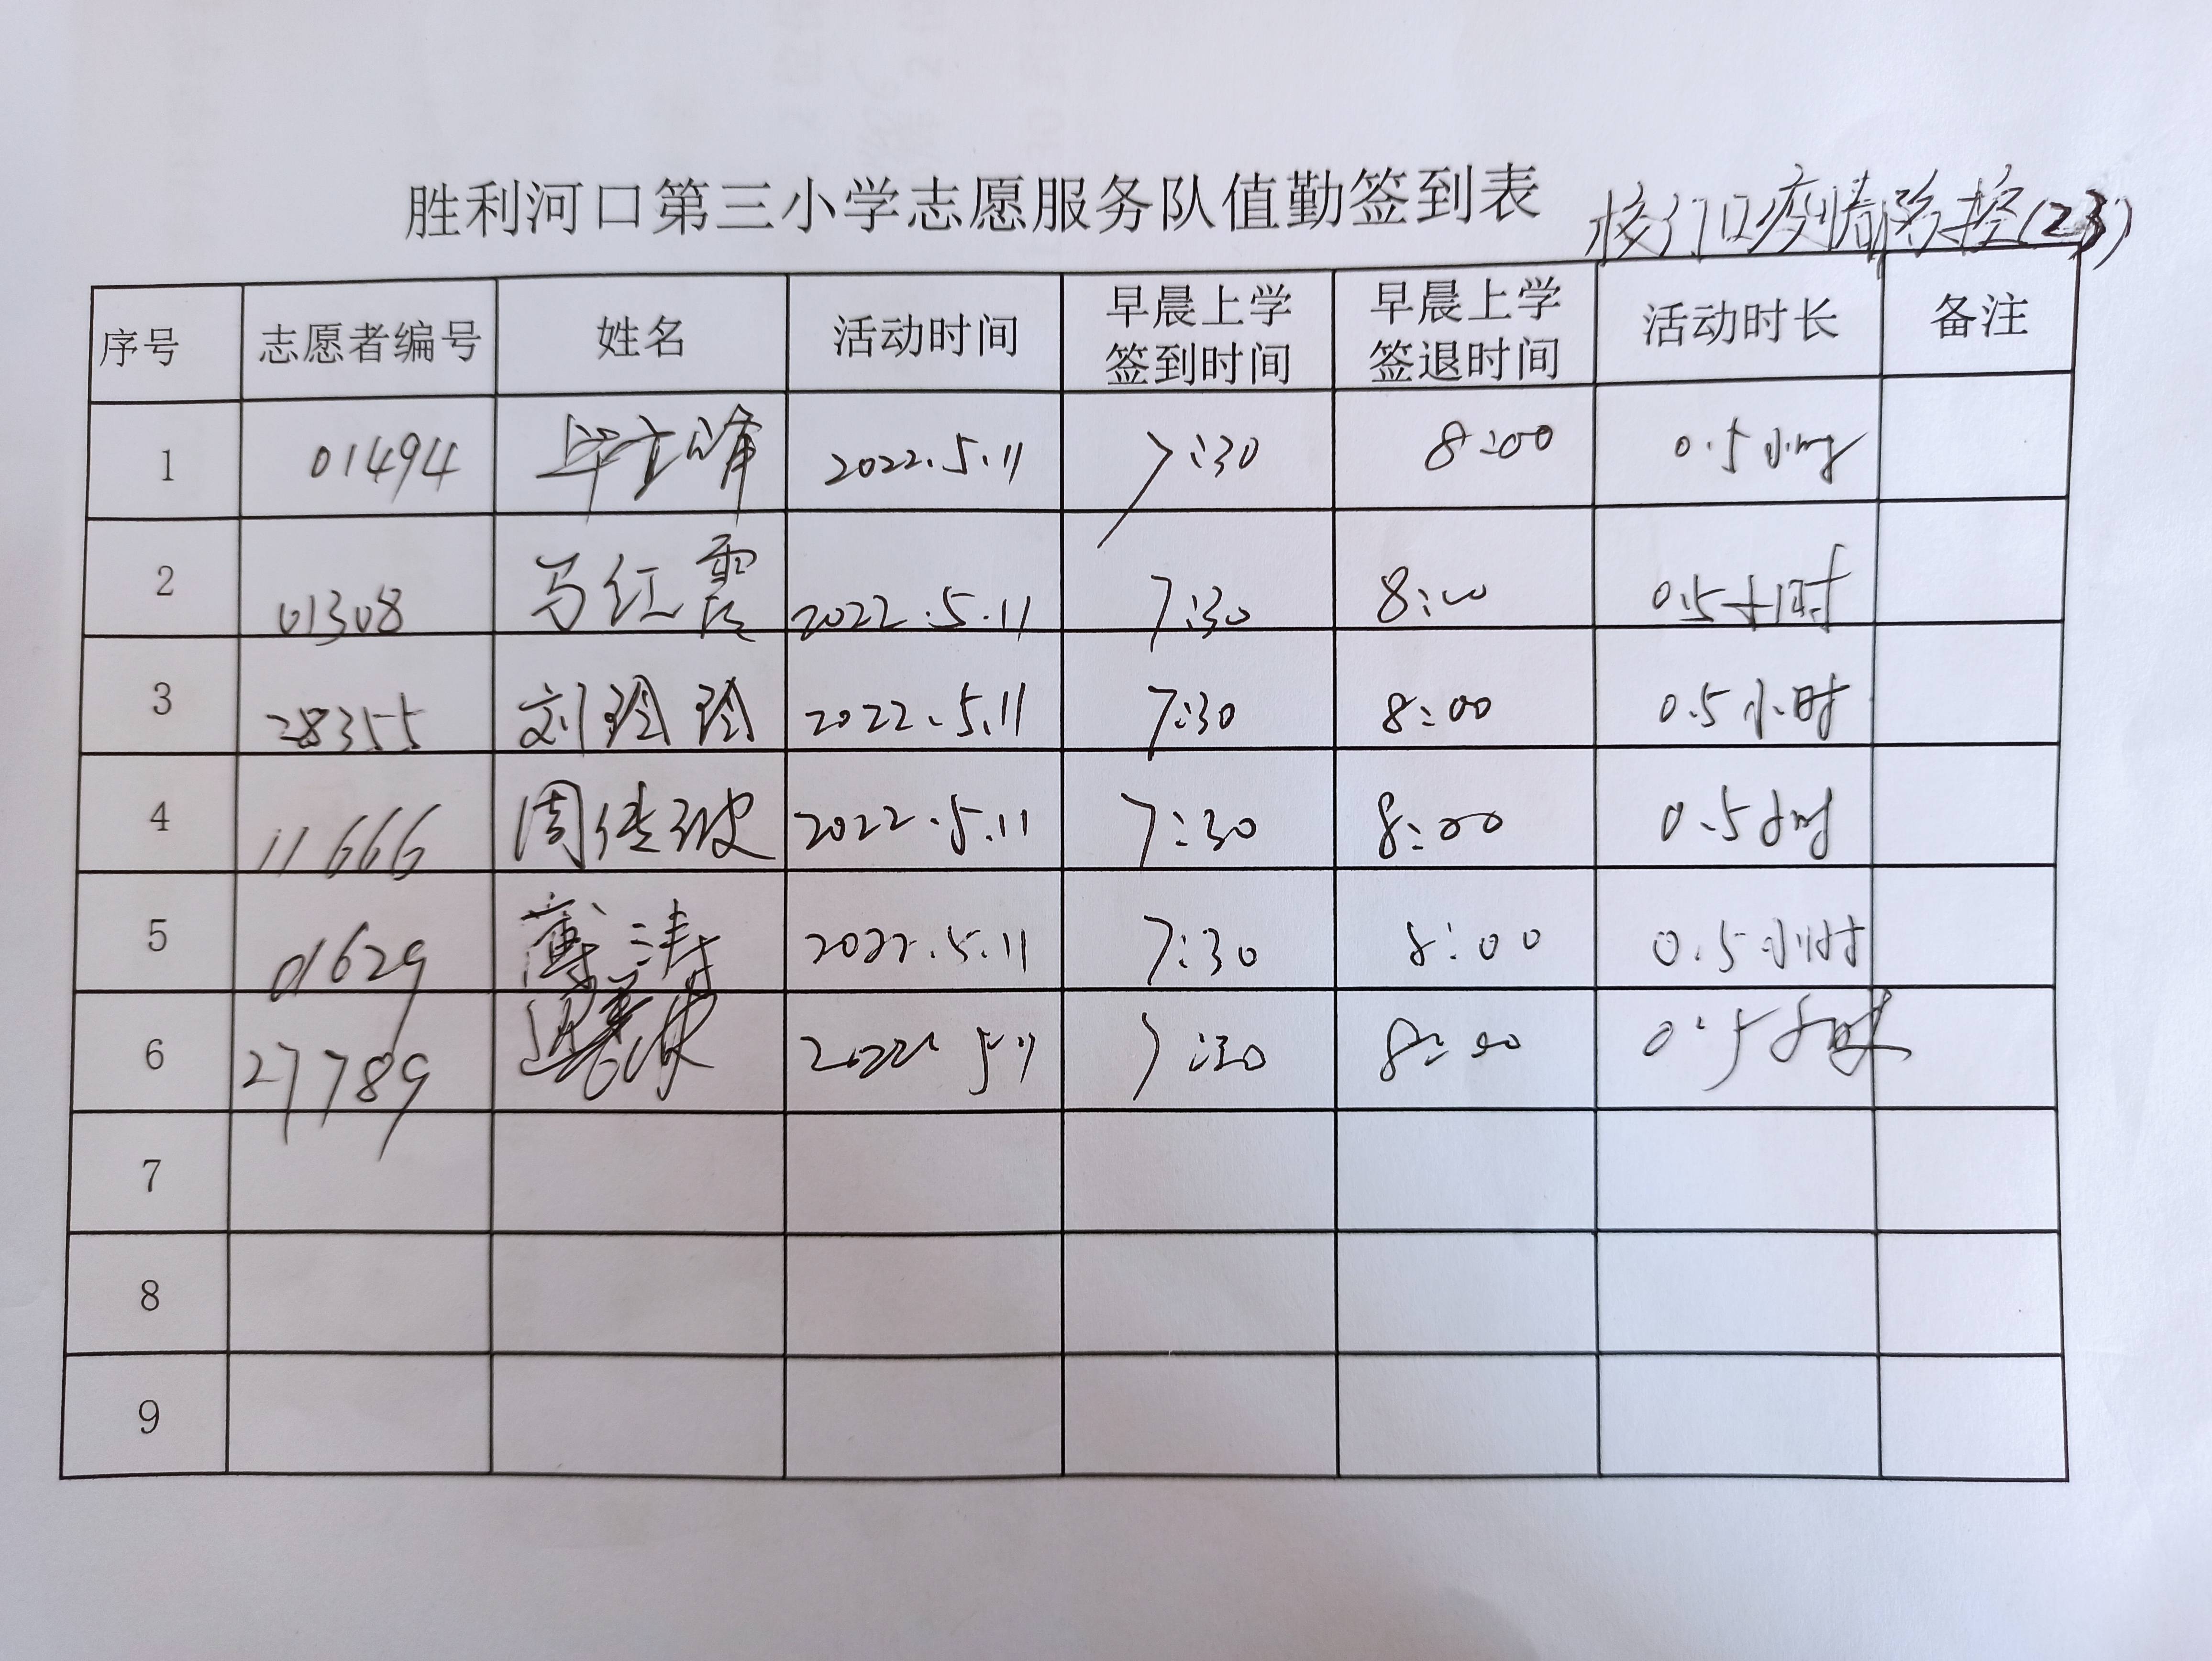 胜利河口第三小学志愿服务队值勤签到表 校门口疫情防控(23)
序号 志愿者编号 姓名 活动时间 早晨上学签到时间 早晨上学签退时间 活动时长 备注
1 01494 毕立峰 2022.5.11 7:30 8:00 0.5小时
2 01308 马红霞 2022.5.11 7:30 8:00 0.5小时
3 28355 刘玲玲 2022.5.11 7:30 8:00 0.5小时
4 11666 周传波 2022.5.11 7:30 8:00 0.5小时
5 01629 薄涛 2022.5.11 7:30 8:00 0.5小时
6 27789 2022 5.11 7:30 8:00 0.5小时
7
8
9